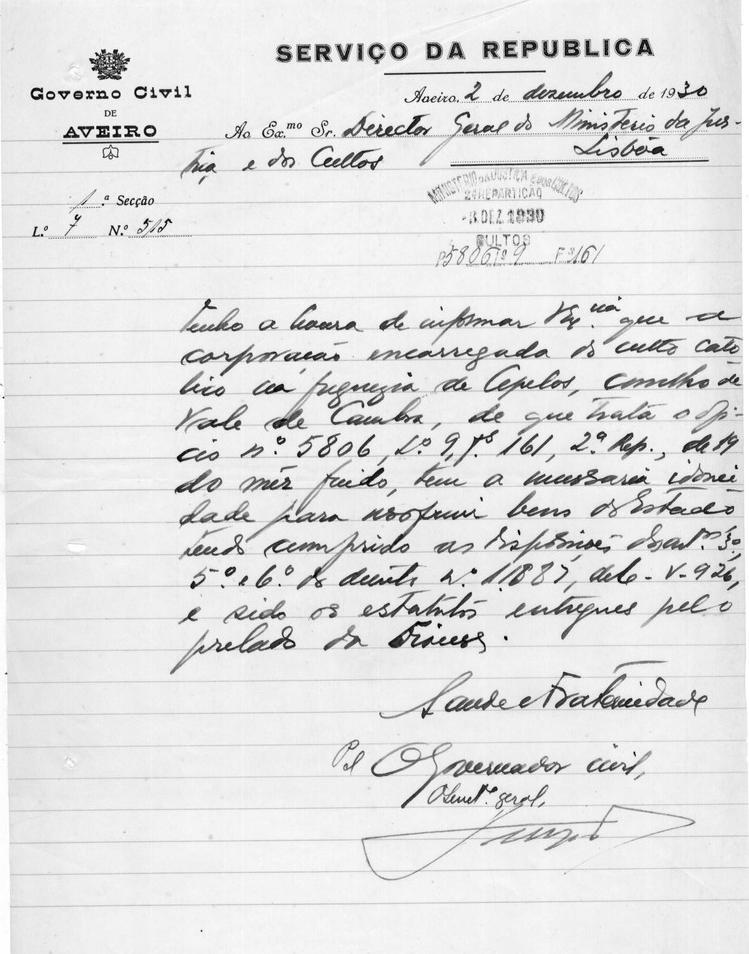 SERVIÇO DA REPUBLICA
Governo Civil
DE
AVEIRO
Aveiro, 2 de dezembro de 1930
Ao Ex.mo Sr. Director Geral do Ministerio da Jus-
tiça e dos Cultos
Lisbôa
1.ª Secção
L.º 7 N.º 515
MINISTERIO DA JUSTIÇA E DOS CULTOS
2ª REPARTIÇÃO
-3.DEZ.1930
CULTOS
P 5806 Lº 9 Fs 161
Tenho a honra de informar V Ex.cia que a
corporação encarregada do culto cató
lico na freguezia de Cepelos, concelho de
Vale de Cambra, de que trata o ofi
cio nº 5806, Lº 9, Fs 161, 2ª Rep., de 19
do mêz findo, tem a necessaria idonei
dade para usofruir bens do Estado
tendo cumprido as disposições dos artos 3º,
5º e 6º do decreto nº 11887, de 6-V-926,
e sido os estatutos entregues pelo
prelado da Diocese.
Saude e Fraternidade
Pel O Governador civil,
O Secretº geral,